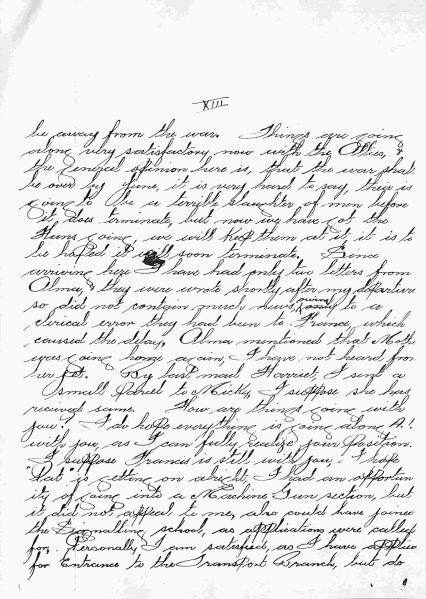 XIII
be away from the war. Things are going
along very satisfactory now with the Allies, &
the general opinion here is, that the war shall
be over by June, it is very hard to say, there is
going to be a terrible slaughter of men before
it does terminate, but now we have got the
Huns going we will keep them at it, it is to
be hoped it will soon terminate. Since
arriving here I have had only two letters from
Alma, & they were wrote shortly after my departure
so did not contain much news, owing to a
clerical error they had been to France, which
caused the delay, Alma mentioned that Mother
was going home again, I have not heard from
her yet. By last mail Harriet, I sent a
small parcel to Micky, I suppose she has
received same. How are things going with
you? I do hope everything is going along A.1.
with you, as I can fully realize your position.
I suppose Francis is still with you, I hope
"Pat" is getting on alright, I had an opportun
ity of going into a Machine Gun section, but
it did not appeal to me, also could have joined
the Signalling school, as applications were called
for. Personally, I am satisfied, as I have applied
for Entrance to the Transport Branch, but do